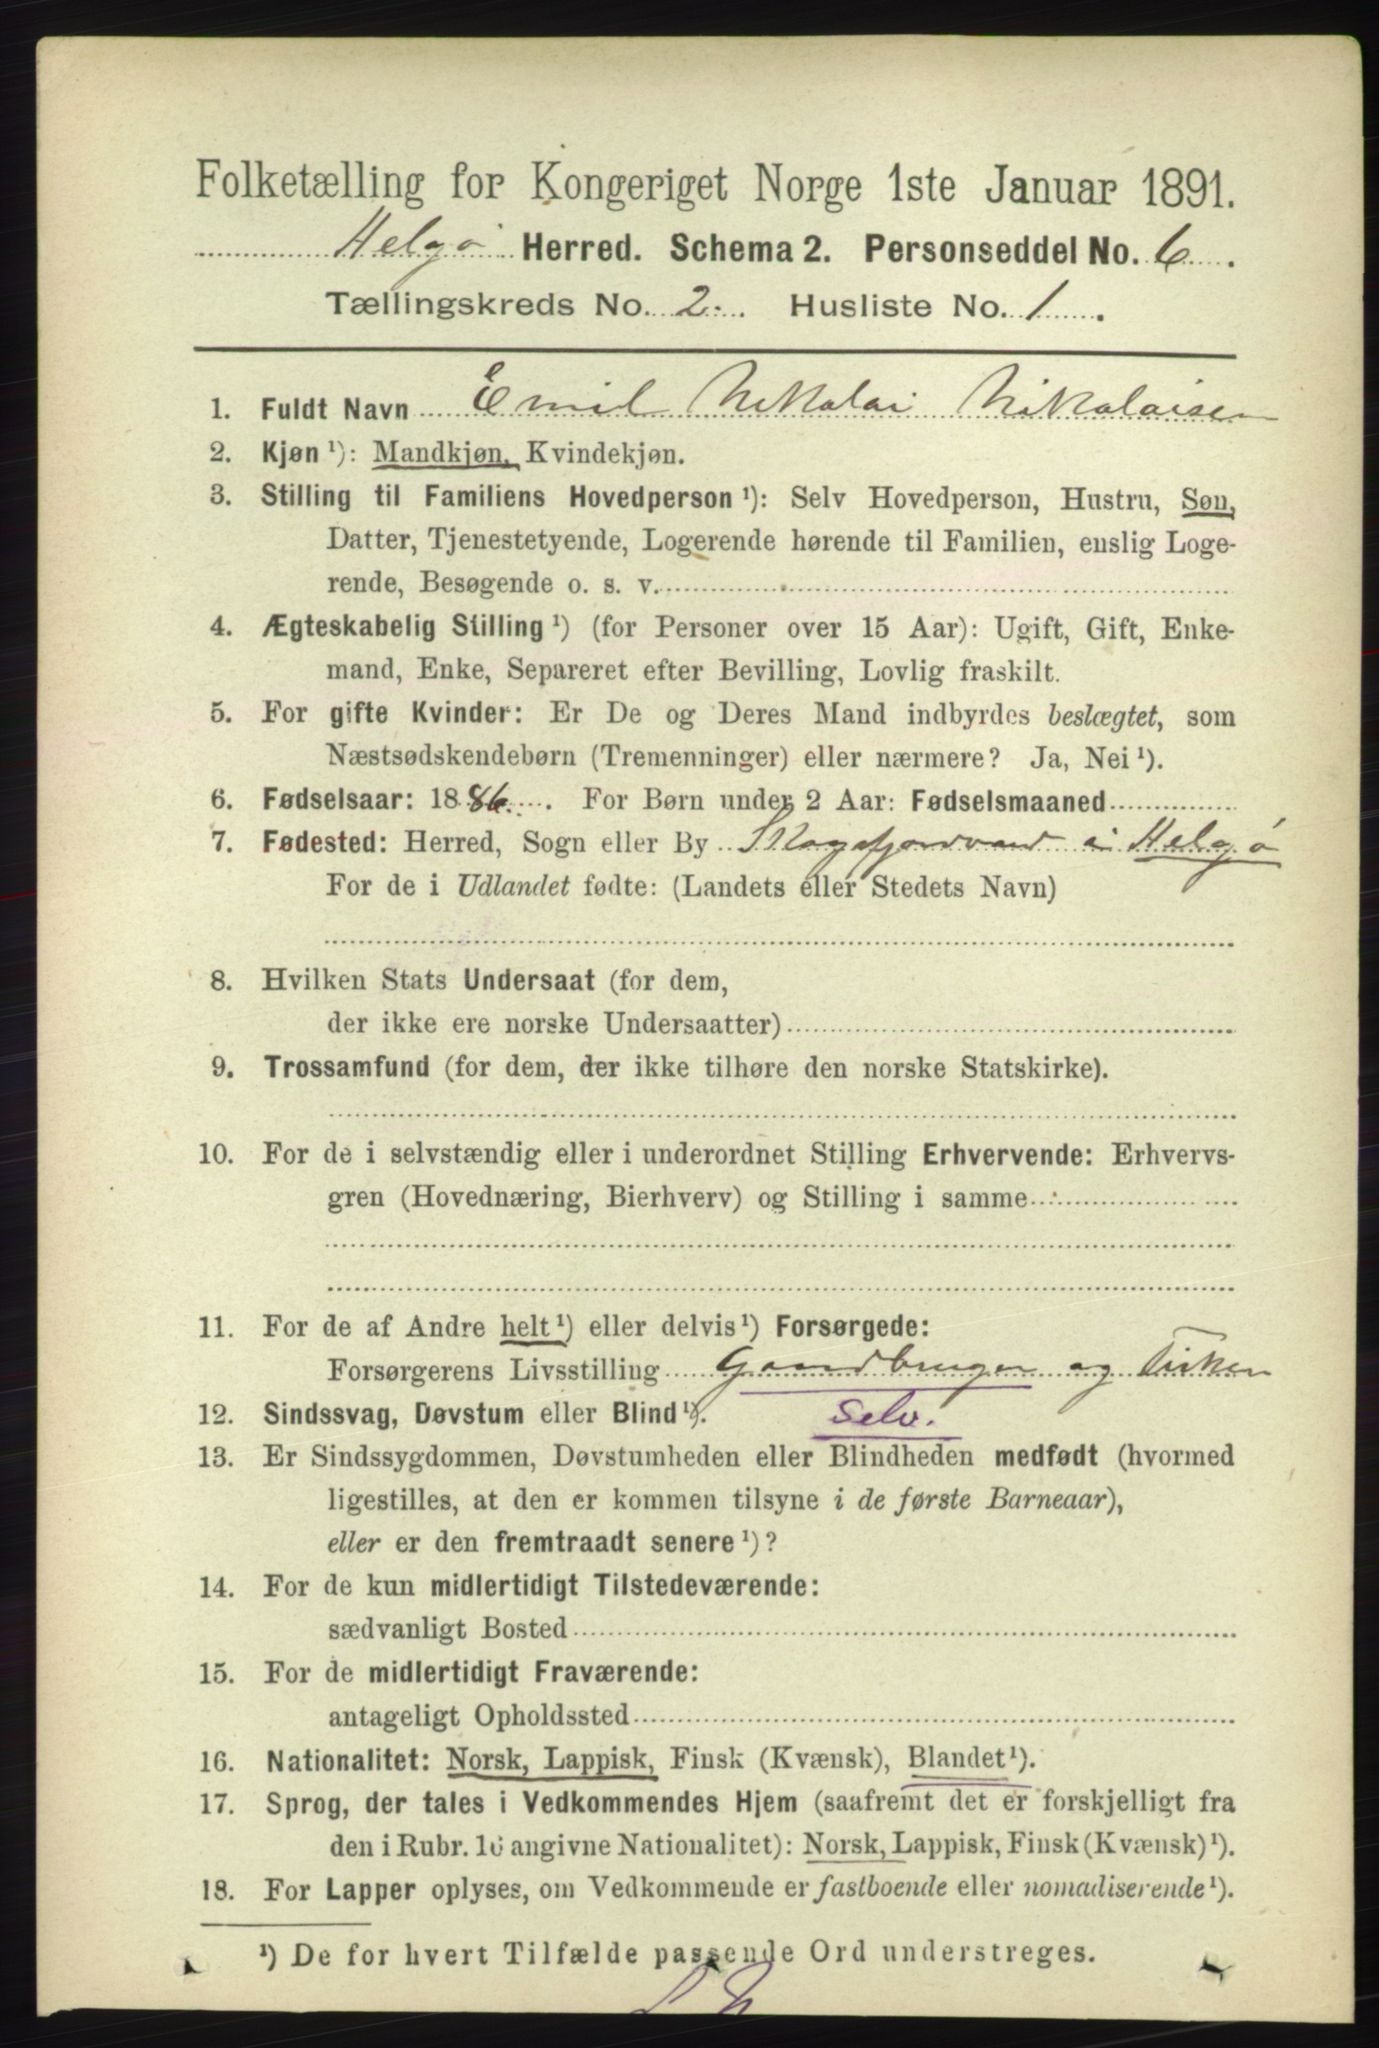 Folketælling for Kongeriget Norge 1ste Januar 1891.
Helgø Herred. Schema 2. Personseddel No. 6.
Tællingskreds No. 2. Husliste No. 1.
1. Fuldt Navn Emil Nikolai Nikolaisen
2. Kjøn ¹): Mandkjøn, Kvindekjøn.
3. Stilling til Familiens Hovedperson ¹): Selv Hovedperson, Hustru, Søn,
Datter, Tjenestetyende, Logerende hørende til Familien, enslig Loge-
rende, Besøgende o. s. v.
4. Ægteskabelig Stilling ¹) (for Personer over 15 Aar): Ugift, Gift, Enke-
mand, Enke, Separeret efter Bevilling, Lovlig fraskilt.
5. For gifte Kvinder: Er De og Deres Mand indbyrdes beslægtet, som
Næstsødskendebørn (Tremenninger) eller nærmere? Ja, Nei ¹).
6. Fødselsaar: 1886. For Børn under 2 Aar: Fødselsmaaned
7. Fødested: Herred, Sogn eller By Skogsfjordvand i Helgø
For de i Udlandet fødte: (Landets eller Stedets Navn)
8. Hvilken Stats Undersaat (for dem,
der ikke ere norske Undersaatter)
9. Trossamfund (for dem, der ikke tilhøre den norske Statskirke).
10. For de i selvstændig eller i underordnet Stilling Erhvervende: Erhvervs-
gren (Hovednæring, Bierhverv) og Stilling i samme
11. For de af Andre helt ¹) eller delvis ¹) Forsørgede:
Forsørgerens Livsstilling Gaardbruger og Fisker
12. Sindssvag, Døvstum eller Blind ¹). Selv.
13. Er Sindssygdommen, Døvstumheden eller Blindheden medfødt (hvormed
ligestilles, at den er kommen tilsyne i de første Barneaar),
eller er den fremtraadt senere ¹)?
14. For de kun midlertidigt Tilstedeværende:
sædvanligt Bosted
15. For de midlertidigt Fraværende:
antageligt Opholdssted
16. Nationalitet: Norsk, Lappisk, Finsk (Kvænsk), Blandet ¹).
17. Sprog, der tales i Vedkommendes Hjem (saafremt det er forskjelligt fra
den i Rubr. 16 angivne Nationalitet): Norsk, Lappisk, Finsk (Kvænsk) ¹).
18. For Lapper oplyses, om Vedkommende er fastboende eller nomadiserende ¹).
¹) De for hvert Tilfælde passende Ord understreges.